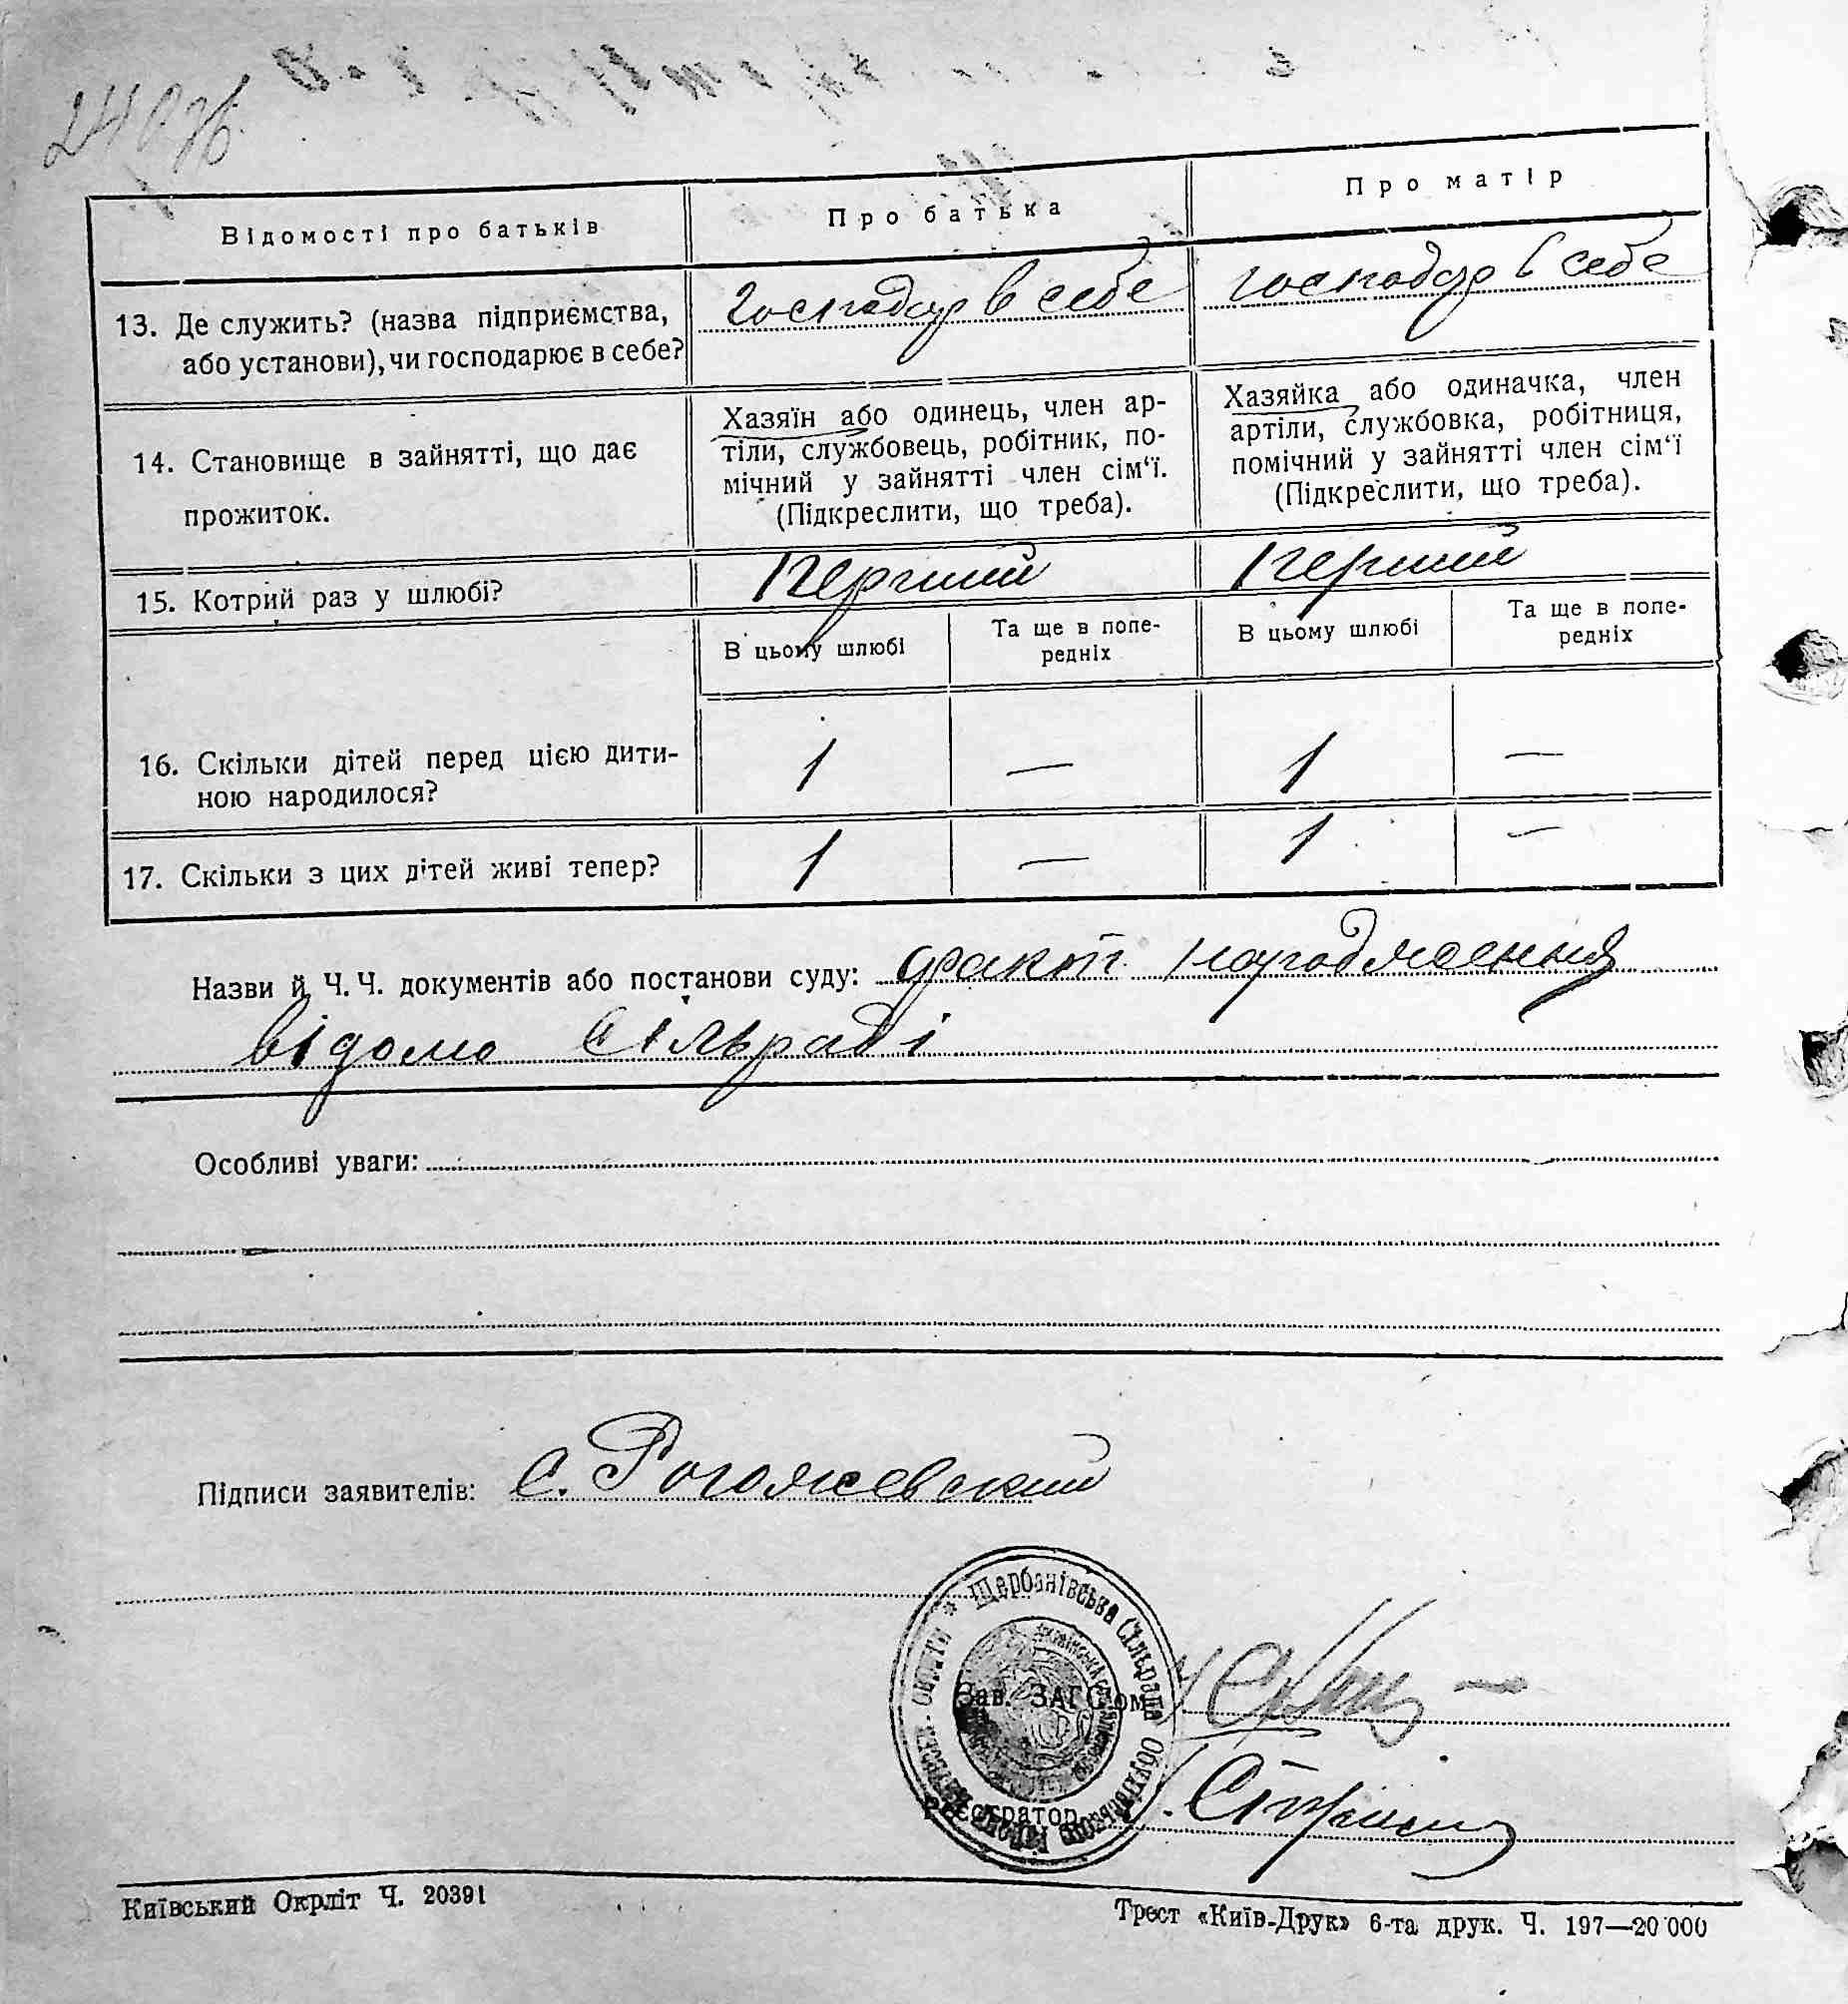 24 отж
Відомості про батьків
Про батька
Про матір
13. Де служить? (назва підприємства, або установи), чи господарює в себе?
господар в себе
господар в себе
14. Становище в зайнятті, що дає
прожиток.
Хазяїн або одинець, член ар-
тіли, службовець, робітник, по-
мічний у зайнятті член сім‘ї.
(Підкреслити, що треба).
Хазяйка або одиначка, член
артіли, службовка, робітниця,
помічний у зайнятті член сім‘ї
(Підкреслити, що треба).
15. Котрий раз у шлюбі?
Перший
Перший
В цьому шлюбі
Та ще в попе-
редніх
В цьому шлюбі
Та ще в попе-
редніх
16. Скільки дітей перед цією дити-
ною народилося?
1
—
1
—
17. Скільки з цих дітей живі тепер?
1
—
1
—
Назви й Ч. Ч. документів або постанови суду: факт народження
відомо Сільраді
Особливі уваги:
Підписи заявителів: С. Рогожевский
Щербанівська Сільрада Обухівського
Зав. ЗАГС'ом
Реєстратор
Київський Окрліт Ч. 20391
Трест «Київ-Друк» 6-та друк. Ч. 197—20 000